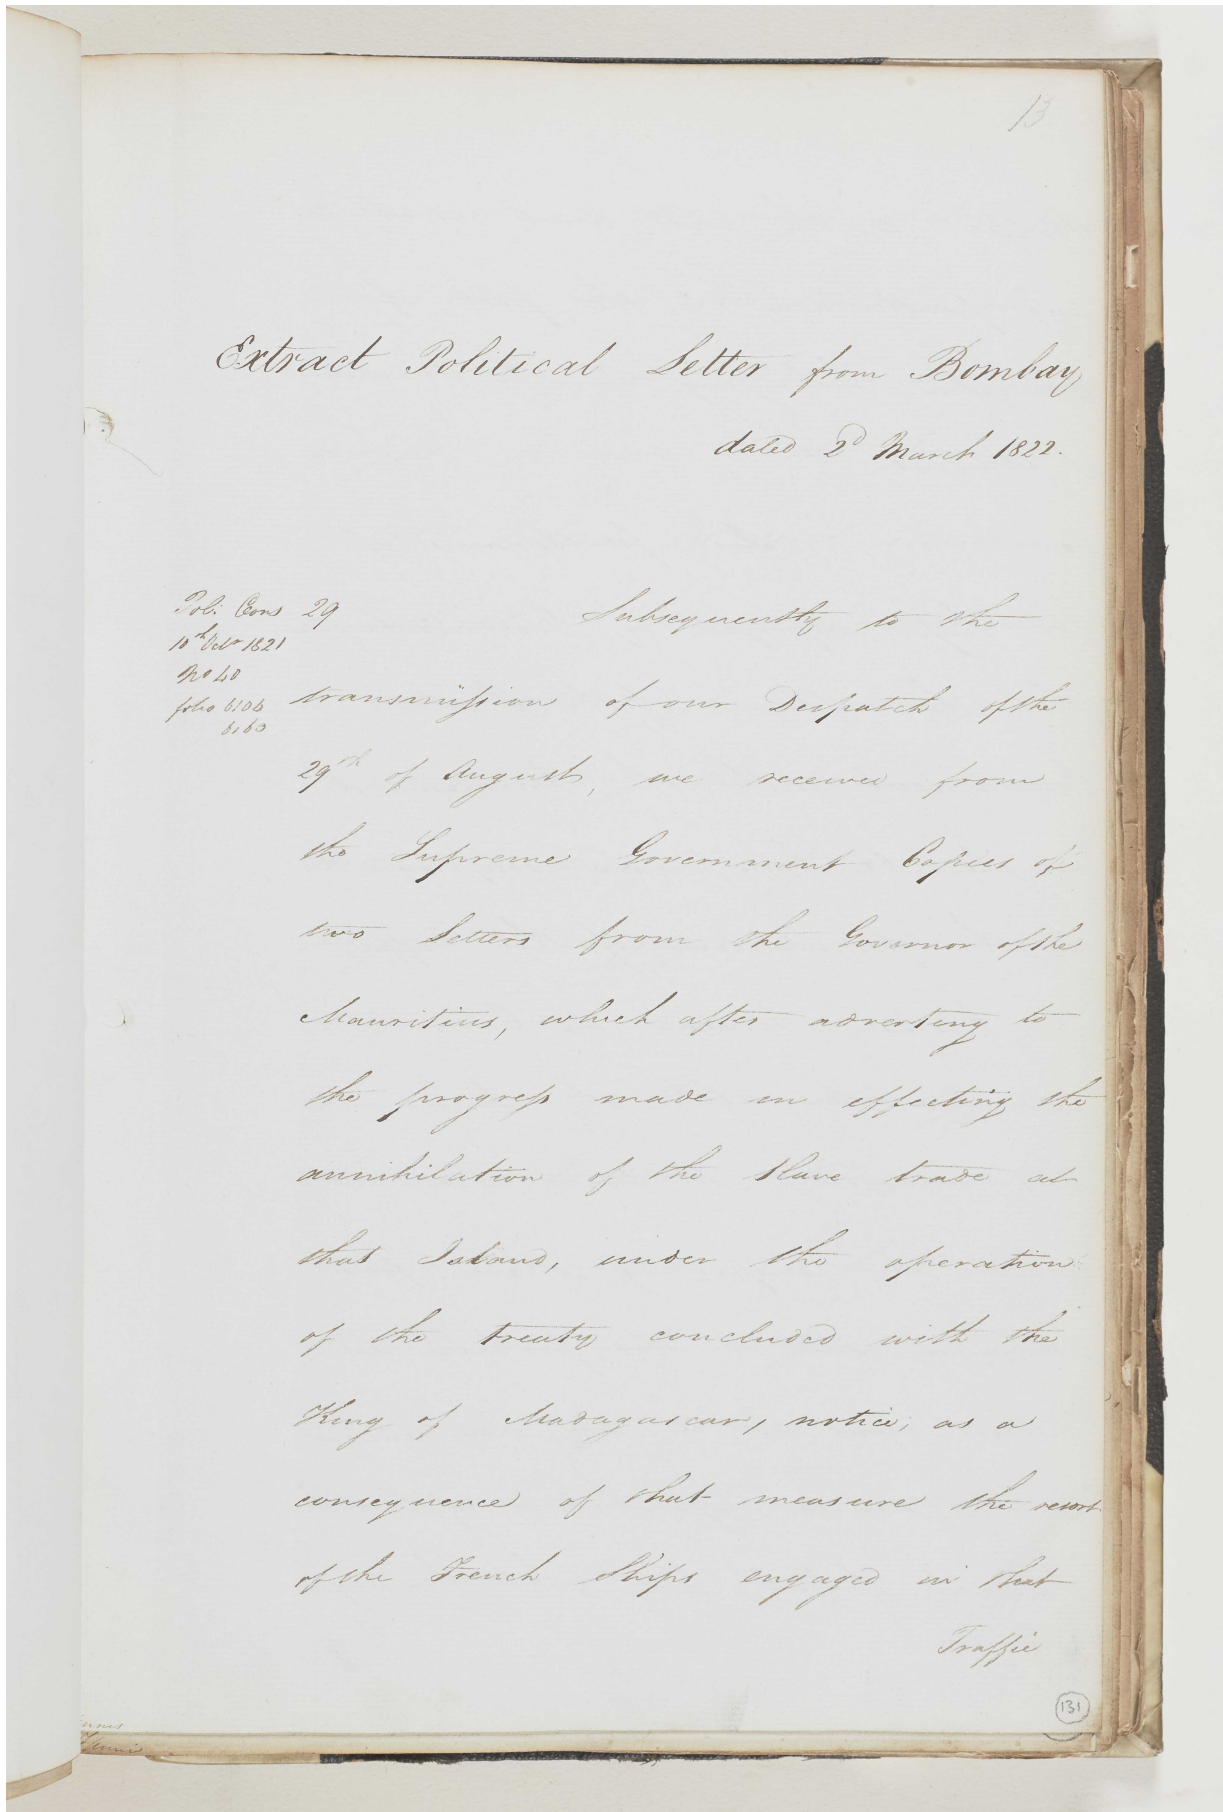 13
Extract Political Letter from Bombay
dated 2d March 1822.
Pol: Cons 29
10th Octr 1821
No 40
folio 6104
6160
Subsequently to the
transmission of our Despatch of the
29th of August, we received from
the Supreme Government Copies of
two Letters from the Governor of the
Mauritius, which after adverting to
the progress made in effecting the
annihilation of the Slave trade at
that Island, under the operation
of the treaty concluded with the
King of Madagascar, notice, as a
consequence of that measure the resort
of the French Ships engaged in that
Traffic
131